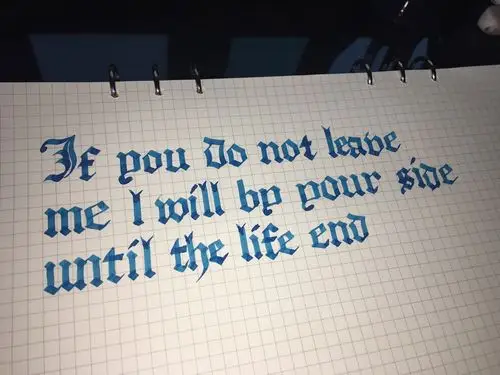 If you do not leave
me I will by your side
until the life end